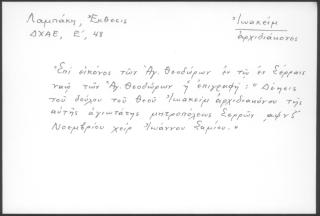 Λαμπάκη, Ἔκθεσις
ΔΧΑΕ, Ε΄, 48
Ἰωακείμ
ἀρχιδιάκονος
"Ἐπὶ εἰκόνος τῶν Ἁγ. Θεοδώρων ἐν τῷ ἐν Σέρραις
ναῷ τῶν "Ἁγ. Θεοδώρων ἡ ἐπιγραφή: "Δέησις
τοῦ δούλου τοῦ Θεοῦ Ἰωακείμ ἀρχιδιακόνου τῆς
αὐτῆς ἁγιωτάτης μητροπόλεως Σερρῶν
Νοεμβρίου χείρ Ἰωάννου Σαμίου."